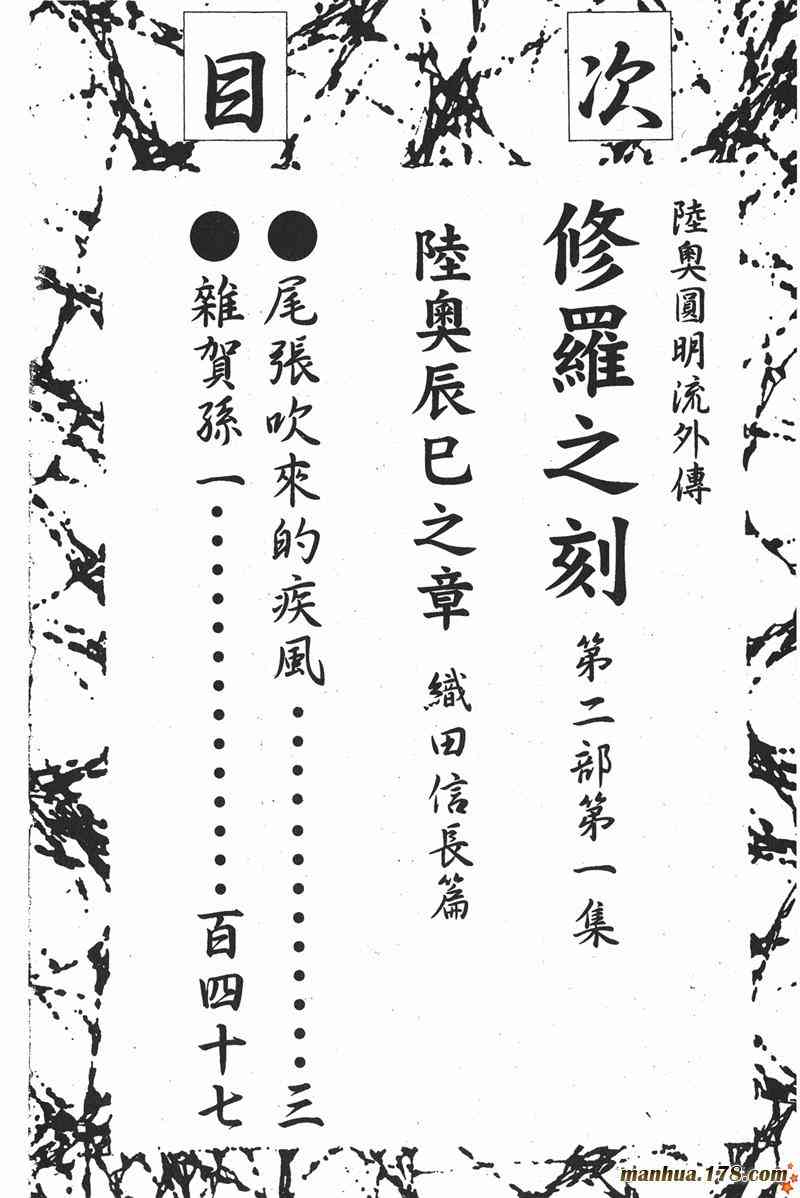 目次
陸奧圓明流外傳
修羅之刻 第二部第一集
陸奧辰巳之章 織田信長篇
●尾張吹來的疾風・・・・・・・・・・・・・三
●雜賀孫一・・・・・・・・・・・・・・百四十七
manhua.178.com